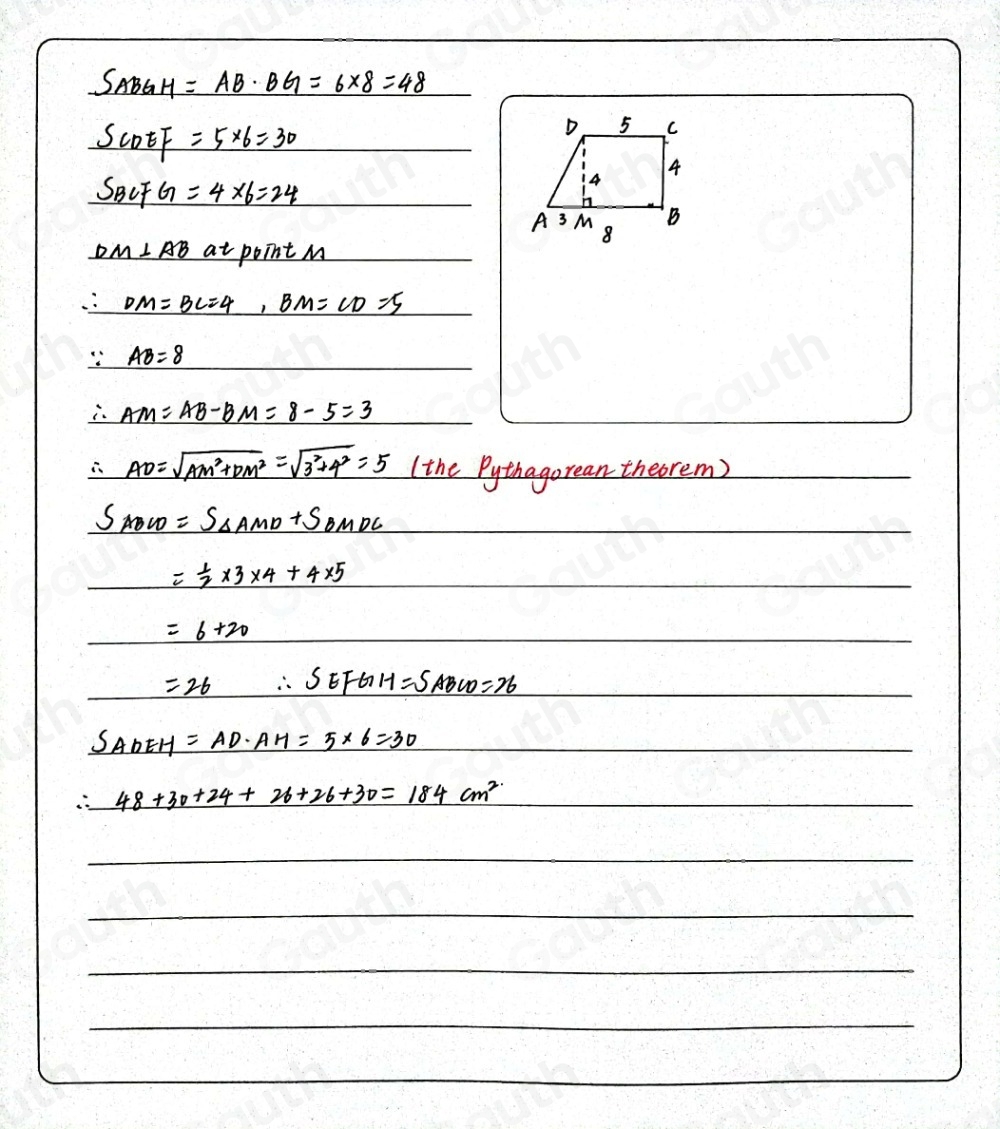 SABGH = AB · BG = 6×8=48
SCDEF = 5×6=30
SBCFG = 4×6=24
DM⊥AB at point M
∴ DM=BC=4 , BM=CD=5
∵ AB=8
∴ AM=AB-BM=8-5=3
∴ AD=√AM²+DM² =√3²+4² =5 (the Pythagorean theorem)
SABCD = S△AMD +SBMDC
= 1/2 ×3×4 + 4×5
= 6+20
=26 ∴ SEFGH=SABCD=26
SADEH = AD·AH= 5×6=30
∴ 48+30+24+ 26+26+30= 184 cm²
D 5 C
4 4
A 3 M B
8